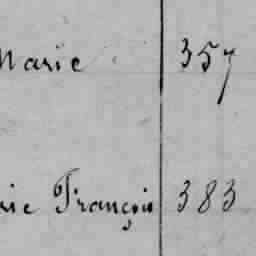 Marie 357
rie François 383